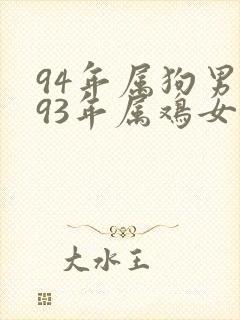 94年属狗男
93年属鸡女
大水王